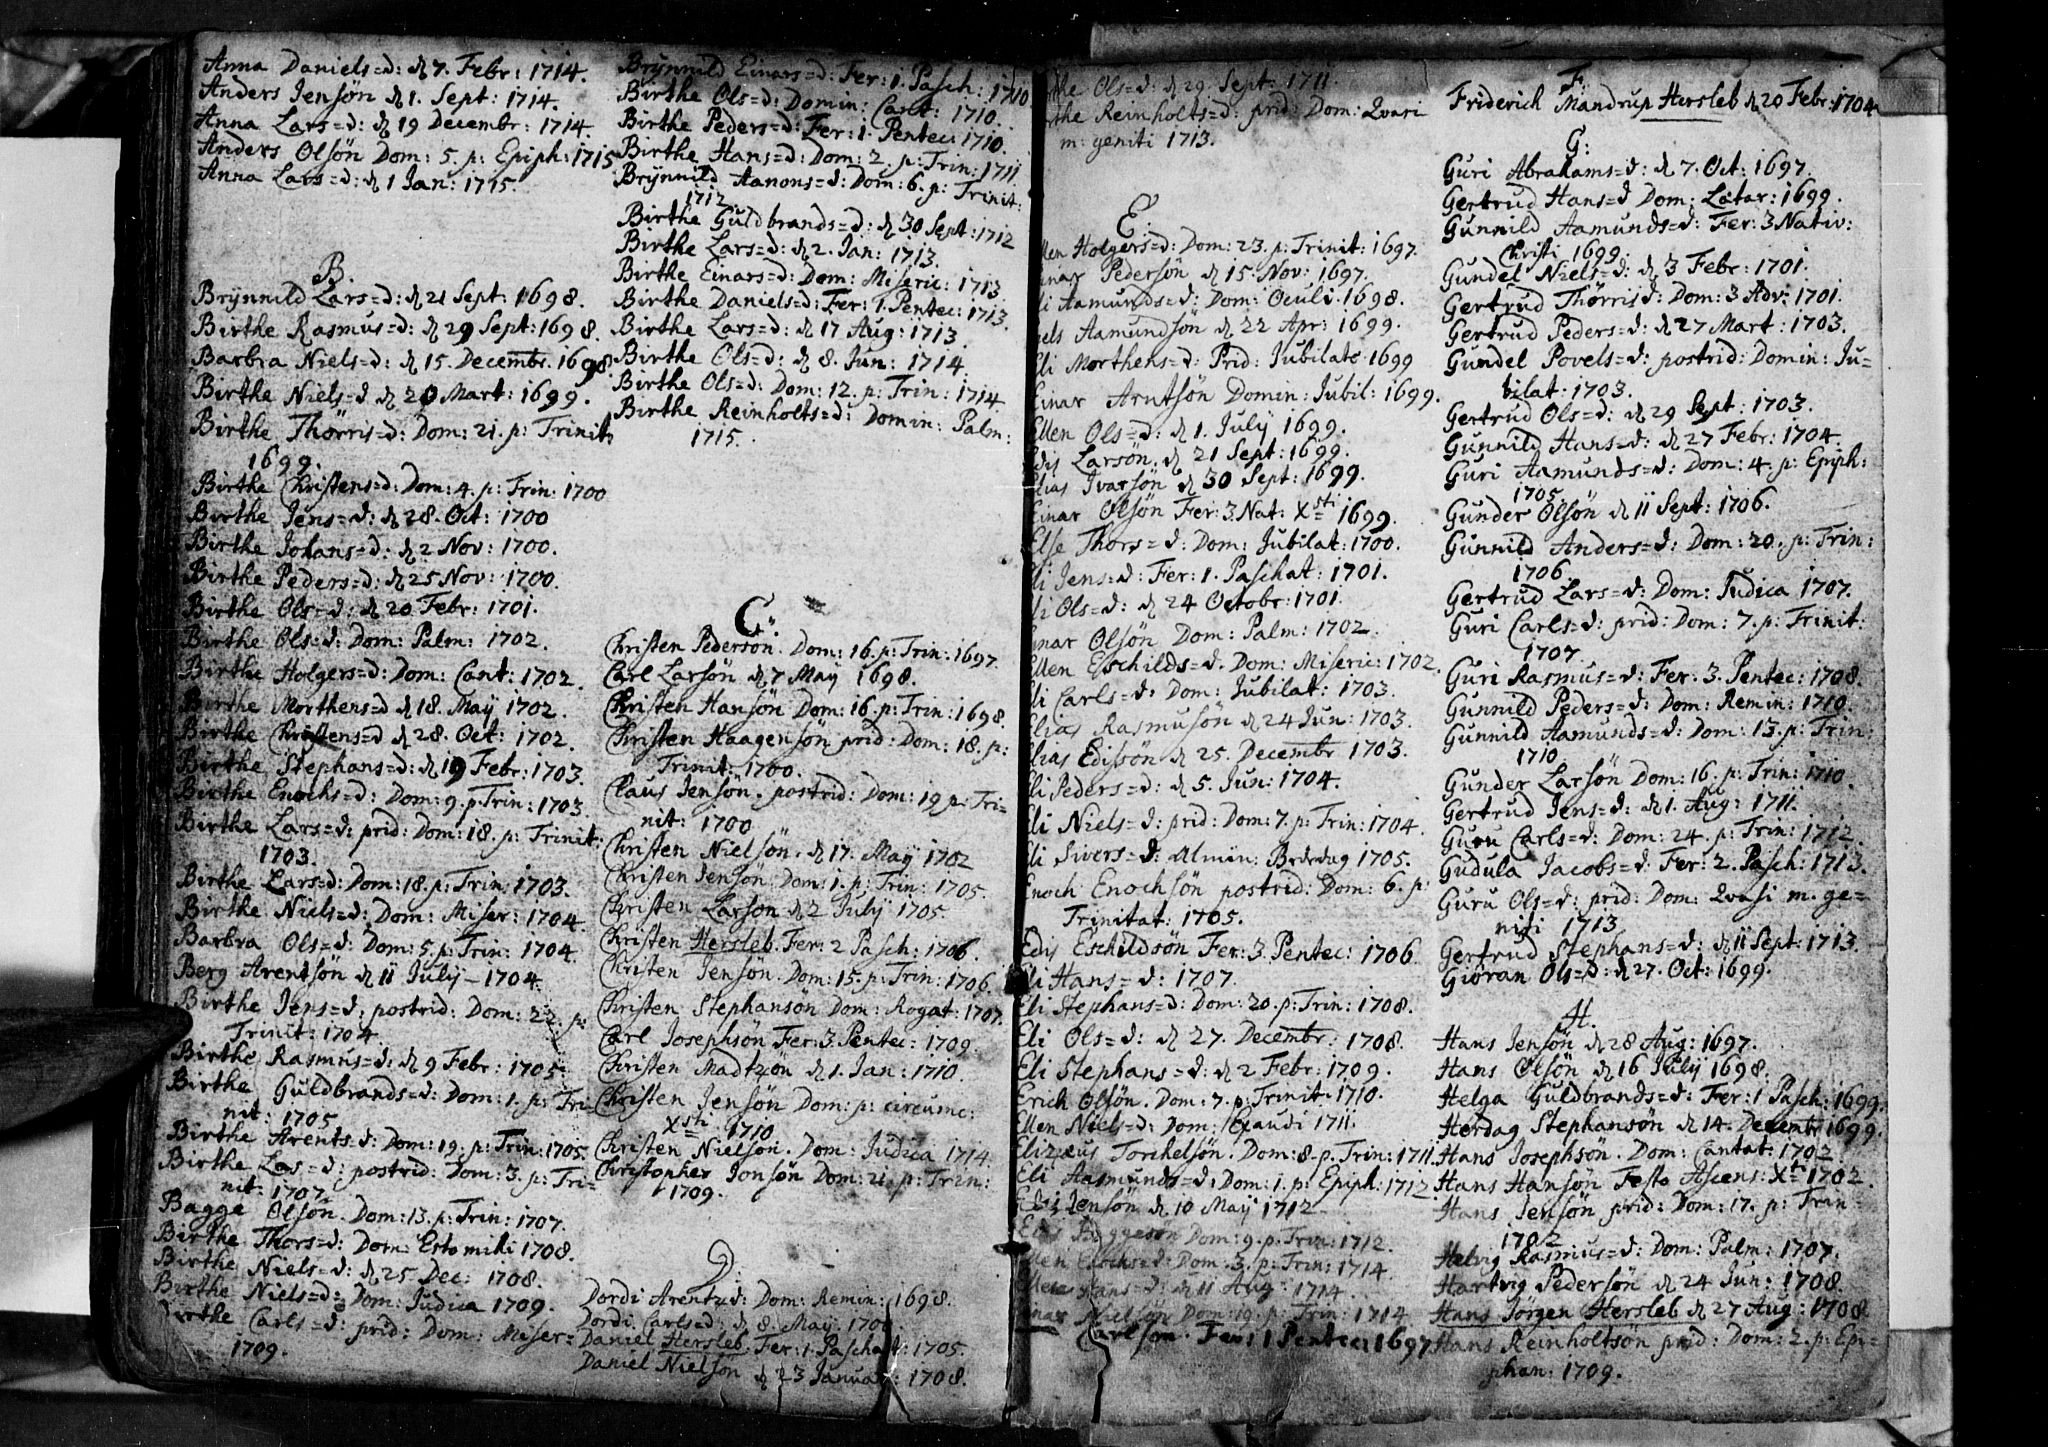 Anna Daniels=d: d 7. Febr: 1714.
Anders Jensøn d 1. Sept: 1714.
Anna Lars=d: d 19 Decembr: 1714.
Anders Olsøn Dom: 5. p: Epiph: 1715
Anna Lars=d: d 1 Jan: 1715.
B.
Brÿnnild Lars=d: d 21 Sept: 1698.
Birthe Rasmus=d: d 29 Sept: 1698.
Barbra Niels=d: d 15. Decembr. 1698.
Birthe Niels=d d 20 Mart: 1699.
Birthe Thørris=d: Dom: 21. p: Trinit:
1699.
Birthe Christens=d: Dom: 4. p: Trin: 1700
Birthe Jens=d: d 28. Oct: 1700
Birthe Johans=d: d 2 Nov: 1700.
Birthe Peders=d: d 25 Nov: 1700.
Birthe Ols=d: d 20 Febr: 1701.
Birthe Ols=d: Dom: Palm: 1702.
Birthe Holgers=d: Dom: Cant: 1702.
Birthe Morthens=d d 18. Maÿ 1702.
Birthe Christens=d d 28. Oct: 1702.
Birthe Stephans=d: d 19 Febr: 1703.
Birthe Enochs=d: Dom: 9. p. Trin: 1703.
Birthe Lars=d: prid: Dom: 18. p: Trinit:
1703.
Birthe Lars=d: Dom: 18. p: Trin: 1703.
Birthe Niels=d: Dom: Miser: 1704.
Barbra Ols=d: Dom: 5. p: Trin: 1704.
Berg Arentsøn d 11 Julÿ - 1704.
Birthe Jens=d: postrid: Dom: 22. p:
Trinit: 1704.
Birthe Rasmus=d: d 9 Febr: 1705.
Birthe Guldbrands=d: Dom: 1. p: Tri=
nit: 1705
Birthe Arents d: Dom: 19. p: Trin: 1705.
Birthe Lars=d: postrid: Dom: 3. p: Tri=
nit: 1707.
Bagge Olsøn. Dom: 13. p: Trin: 1707.
Birthe Thors=d: Dom: Estomihi 1708.
Birthe Niels=d: d 25 Dec: 1708.
Birthe Niels=d: Dom: Judica 1709.
Birthe Carls=d: prid: Dom: Miser=
1709.
Brÿnnild Einars=d: Fer: 1. Pasch: 1710
Birthe Ols=d: Domin: Cant: 1710.
Birthe Peders=d: Fer: 1. Pentec: 1710.
Birthe Hans=d: Dom: 2. p: Trin: 1711.
Brÿnnild Aanons=d: Dom: 6. p: Trinit:
1712.
Birthe Guldbrands=d: d 30 Sept: 1712
Birthe Lars=d: d 2. Jan: 1713.
Birthe Einars=d: Dom: Miseric: 1713
Birthe Daniels=d: Fer: 1. Pentec: 1713.
Birthe Lars=d: d 17 Aug: 1713.
Birthe Ols=d: d 8. Jun: 1714.
Birthe Ols=d: Dom: 12. p: Trin: 1714
Birthe Reinholts=d: Domin: Palm:
1715.
C.
Christen Pedersøn. Dom: 16. p: Trin: 1697.
Carl Larsøn d 7 Maÿ 1698.
Christen Hansøn Dom: 16. p: Trin: 1698.
Christen Haagensøn prid: Dom: 18. p:
Trinit: 1700.
Claus Jensøn. postrid: Dom: 19 p: Tri=
nit: 1700
Christen Nielsøn. d 17. Maÿ 1702
Christen Jensøn. Dom: 1. p: Trin: 1705.
Christen Larson d 2 Julÿ 1705.
Christen Hersleb. Fer: 2 Pasch: 1706.
Christen Jensøn. Dom: 15. p: Trin: 1706.
Christen Stephanson Dom: Rogat: 1707.
Carl Josephsøn Fer: 3. Pentec: 1709.
Christen Madtzøn d 1. Jan: 1710.
Christen Jensøn Dom: p: circumc:
Xsti 1710
Christen Nielsøn. Dom: Judica 1714
Christopher Jonsøn Dom: 21. p: Trin:
1709.
D.
Dordi Arentz d: Dom: Remin: 1698.
Dordi Carls=d: d 8. Maÿ. 1700.
Daniel Hersleb. Fer: 1. Paschat: 1705.
Daniel Nielsøn d 23 Januar: 1708.
the Ols=d: d 29. Sept: 1711
the Reinholts=d: prid: Dom: Qvasi
m: geniti 1713.
E.
llen Holgers=d: Dom: 23. p: Trinit: 1697.
inar Pedersøn d 15. Nov: 1697.
li Aamunds=d: Dom: Oculi 1698.
els Aamundsøn d 22 Apr: 1699.
Eli Morthens=d: Prid: Jubilate 1699
Einar Arntsøn Domin: Jubil: 1699.
Ellen Ols=d: d 1. Julÿ 1699.
Edis Larsøn. d 21 Sept: 1699.
Elias Ivarsøn d 30 Sept: 1699.
Einar Olsøn Fer: 3. Nat: Xsti 1699.
Else Thors=d: Dom: Jubilat: 1700.
Eli Jens=d: Fer: 1. Paschat: 1701.
Eli Ols=d: d 24 Octobr: 1701.
Einar Olsøn Dom: Palm: 1702.
Ellen Eschilds=d. Dom: Miseric: 1702.
Eli Carls=d: Dom: Jubilat: 1703.
Elias Rasmusøn d 24 Jun: 1703.
Elias Edissøn d 25. Decembr 1703.
Eli Peders=d: d 5. Jun: 1704.
Eli Niels=d: prid: Dom: 7. p: Trin: 1704.
Eli Sivers=d: Almin: Bededag 1705.
Enoch Enochsøn postrid: Dom: 6. p:
Trinitat: 1705.
Edis Eschildsøn Fer: 3. Pentec: 1706.
Eli Hans=d: 1707.
Eli Stephans=d: Dom: 20. p: Trin: 1708.
Eli Ols=d: d 27. Decembr: 1708.
Eli Stephans=d: d 2 Febr: 1709.
Erich Olsøn. Dom: 7. p: Trinit: 1710.
Ellen Niels=d: Dom: Exaudi 1711.
Elizæus Torchelsøn. Dom: 8. p. Trin: 1711.
Eli Aasmunds=d: Dom: 1. p: Epiph: 1712.
Edis Jensøn d 10 Maÿ 1712
Edis Baggesøn Dom: 9. p: Trin: 1712.
Ellen Enochs=d: Dom: 3. p: Trin: 1714.
Ellen Hans=d: d 11 Aug: 1714.
Einar Nielsøn Dom: 19. p: Trin: 1714
Carlson. Fer: 1 Pentec: 1697
F.
Friderich Mandrup Hersleb d 20 Febr: 1704
G:
Guri Abrahams=d: d 7. Oct: 1697.
Gertrud Hans=d Dom: Lætar: 1699.
Gunnild Aamunds=d: Fer: 3 Nativ:
Christi 1699.
Gundel Niels=d: d 3 Febr: 1701.
Gertrud Thørris d: Dom: 3 Adv: 1701.
Gertrud Peders=d: d 27 Mart: 1703.
Gundel Povels=d: postrid: Domin: Ju=
bilat: 1703.
Gertrud Ols=d: d 29 Sept: 1703.
Gunnild Hans=d: d 27 Febr: 1704.
Guri Aamunds=d: Dom: 4. p: Epiph:
1705.
Gunder Olsøn d 11 Sept: 1706.
Gunnild Anders=d: Dom: 20. p: Trin:
1706.
Gertrud Lars=d: Dom: Judica 1707.
Guri Carls=d: prid: Dom: 7. p: Trinit:
1707.
Guri Rasmus=d: Fer: 3. Pentec: 1708.
Gunnild Peders=d: Dom: Remin: 1710.
Gunnild Aamunds=d: Dom: 13. p: Trin:
1710
Gunder Larsøn Dom: 16. p: Trin: 1710
Gertrud Jens=d: d 1. Aug: 1711.
Guru Carls=d: Dom: 24. p: Trin: 1712.
Gudula Jacobs=d: Fer: 2. Pasch: 1713.
Guru Ols=d: prid: Dom: Qvasi m. ge=
niti 1713.
Gertrud Stephans=d: d 11 Sept: 1713.
Giøran Ols=d: d 27. Oct: 1699.
H.
Hans Jensøn d 28 Aug: 1697.
Hans Olsøn d 16 Julÿ 1698.
Helga Guldbrands=d: Fer: 1 Pasch: 1699.
Herdag Stephansøn d 14. Decembr 1699.
Hans Josephsøn. Dom: Cantat: 1702
Hans Hansøn Festo Ascens: Xti 1702.
Hans Jensøn prid: Dom: 17. p: Trin=
1702
Helvig Rasmus=d: Dom: Palm: 1707.
Hartvig Pedersøn d 24 Jun: 1708.
Hans Jørgen Hersleb d 27 Aug: 1708
Hans Reinholtsøn prid: Dom: 2. p: Epi=
phan: 1709.